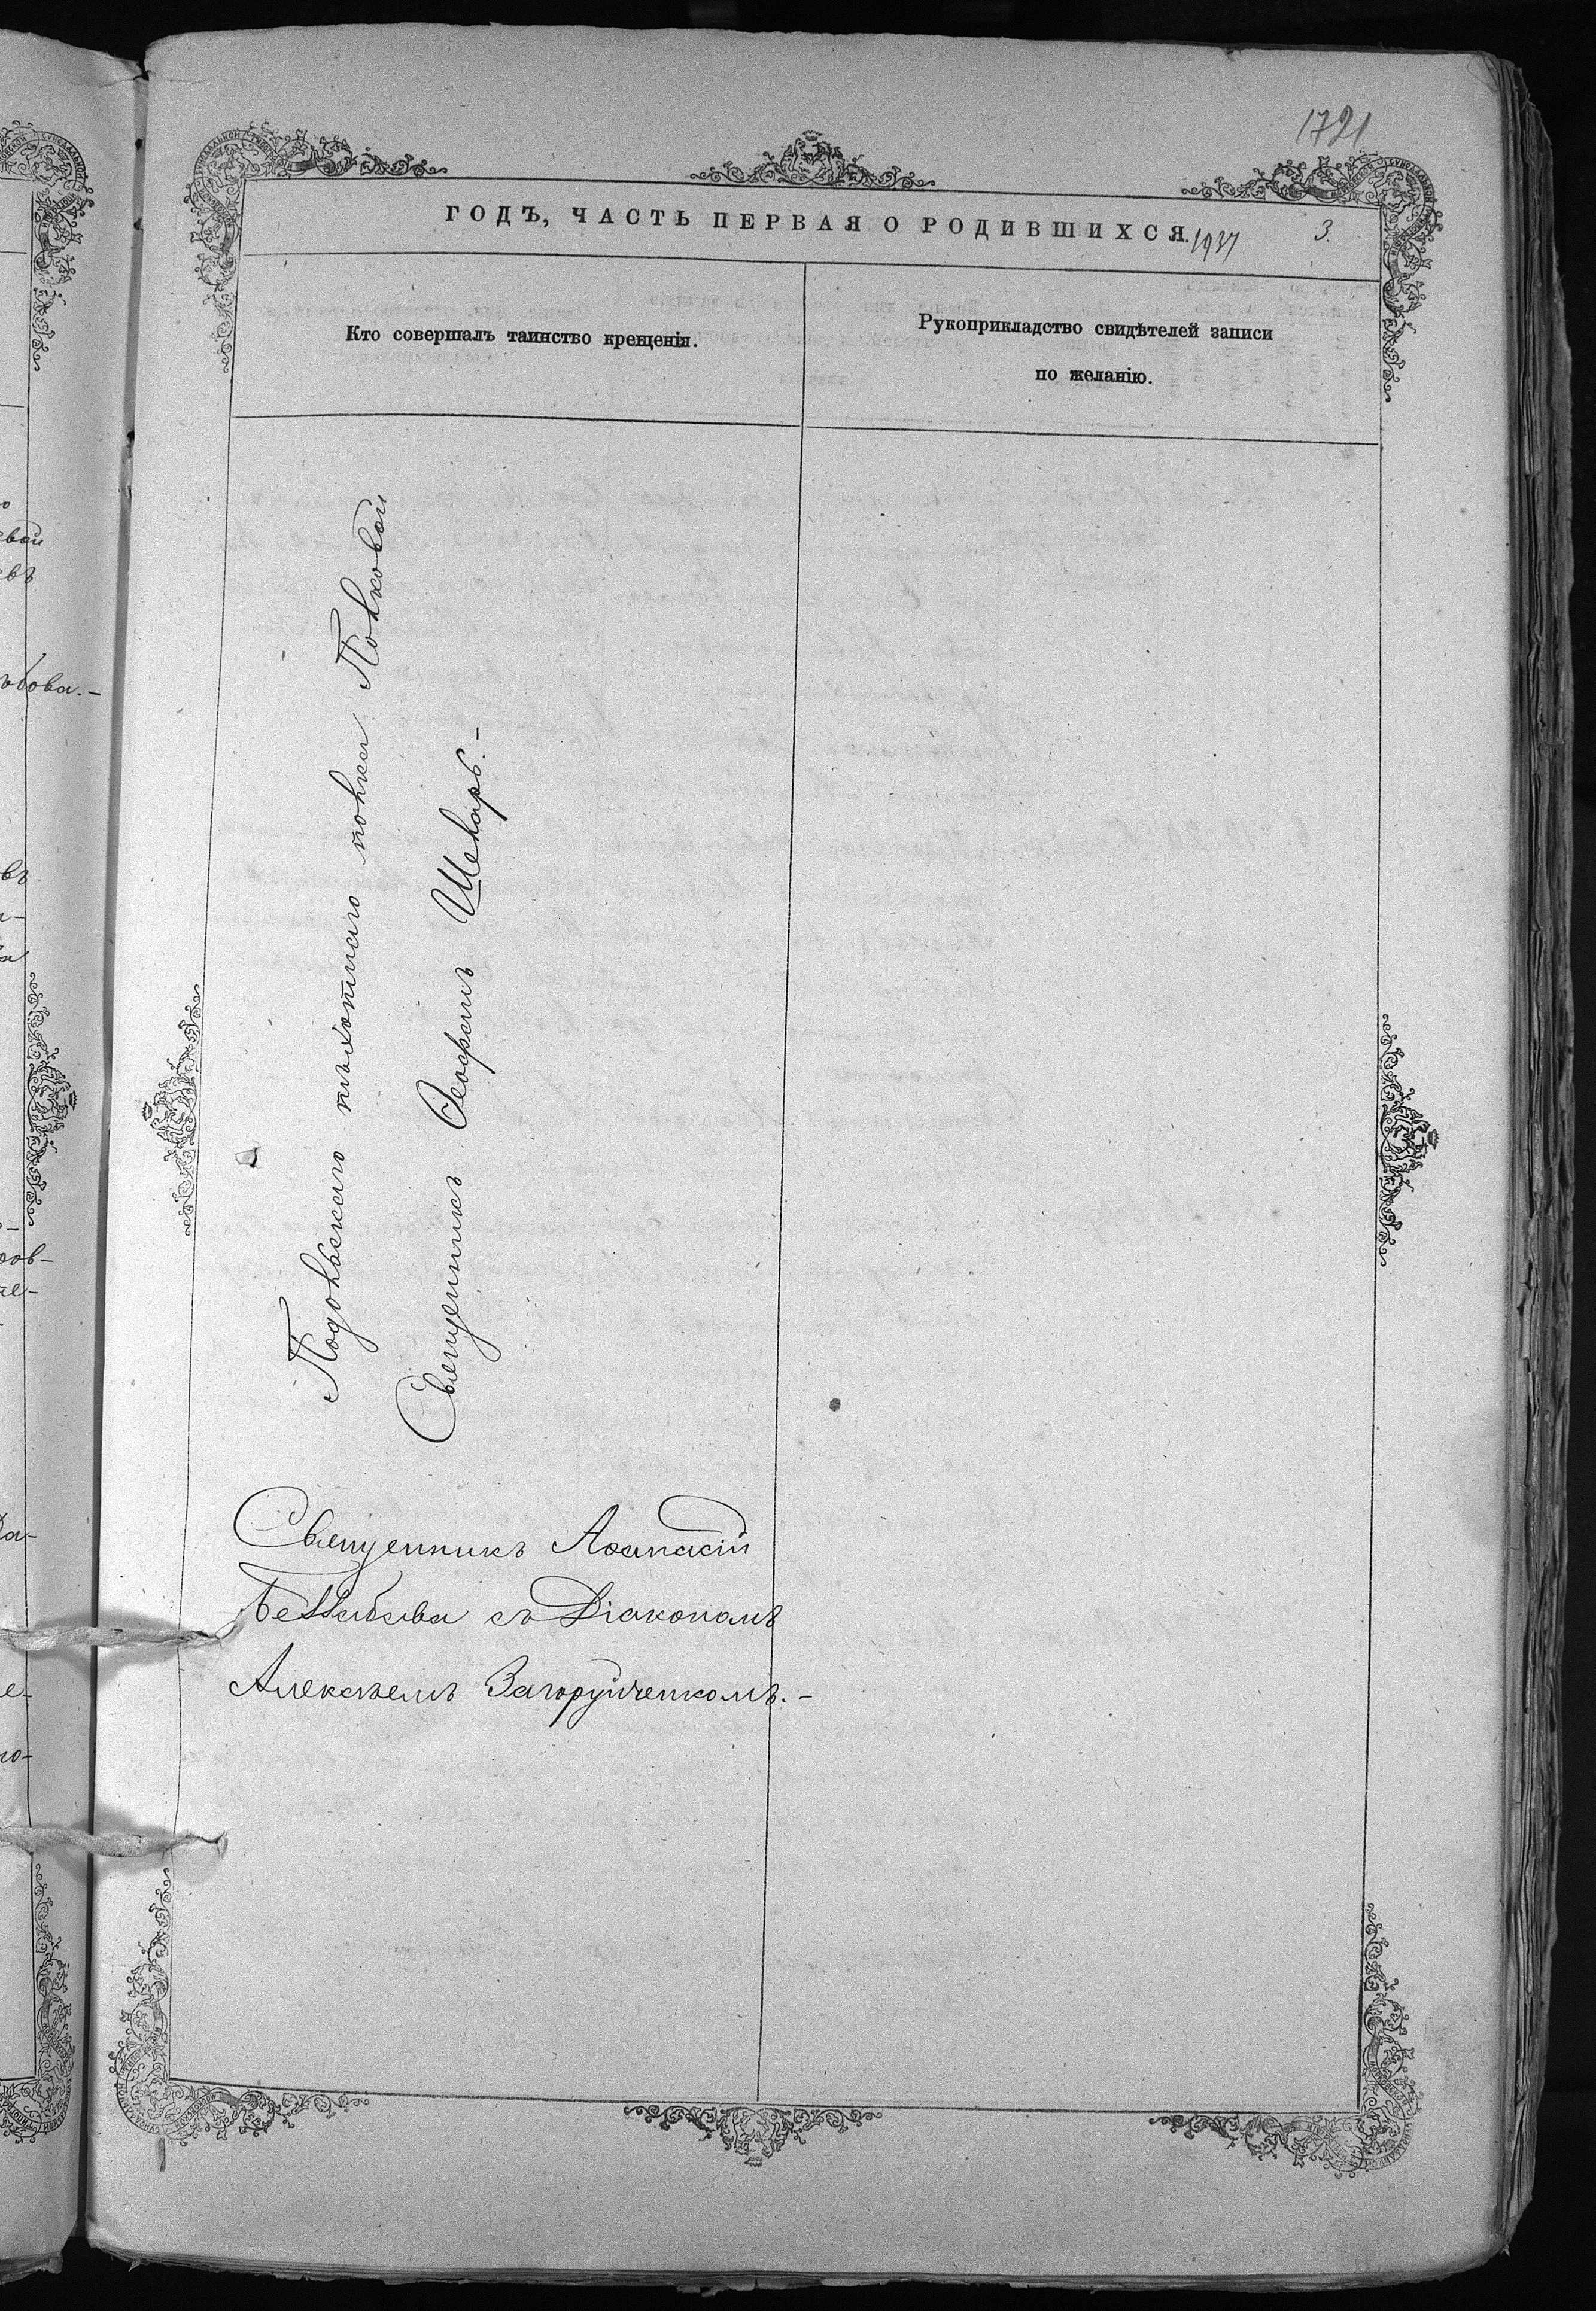 1721
ГОДЪ, ЧАСТЬ ПЕРВАЯ О РОДИВШИХСЯ.
3.
Кто совершалъ таинство крещенія.
Рукоприкладство свидѣтелей записи
по желанію.
Подольскаго пѣхотнаго полка Полковой
Священникъ Іеофилъ Шекаръ.-
Священникъ Аѳанасій
съ Діакономъ
Алексѣемъ Загоруйченкомъ.-
евой
евъ
въ